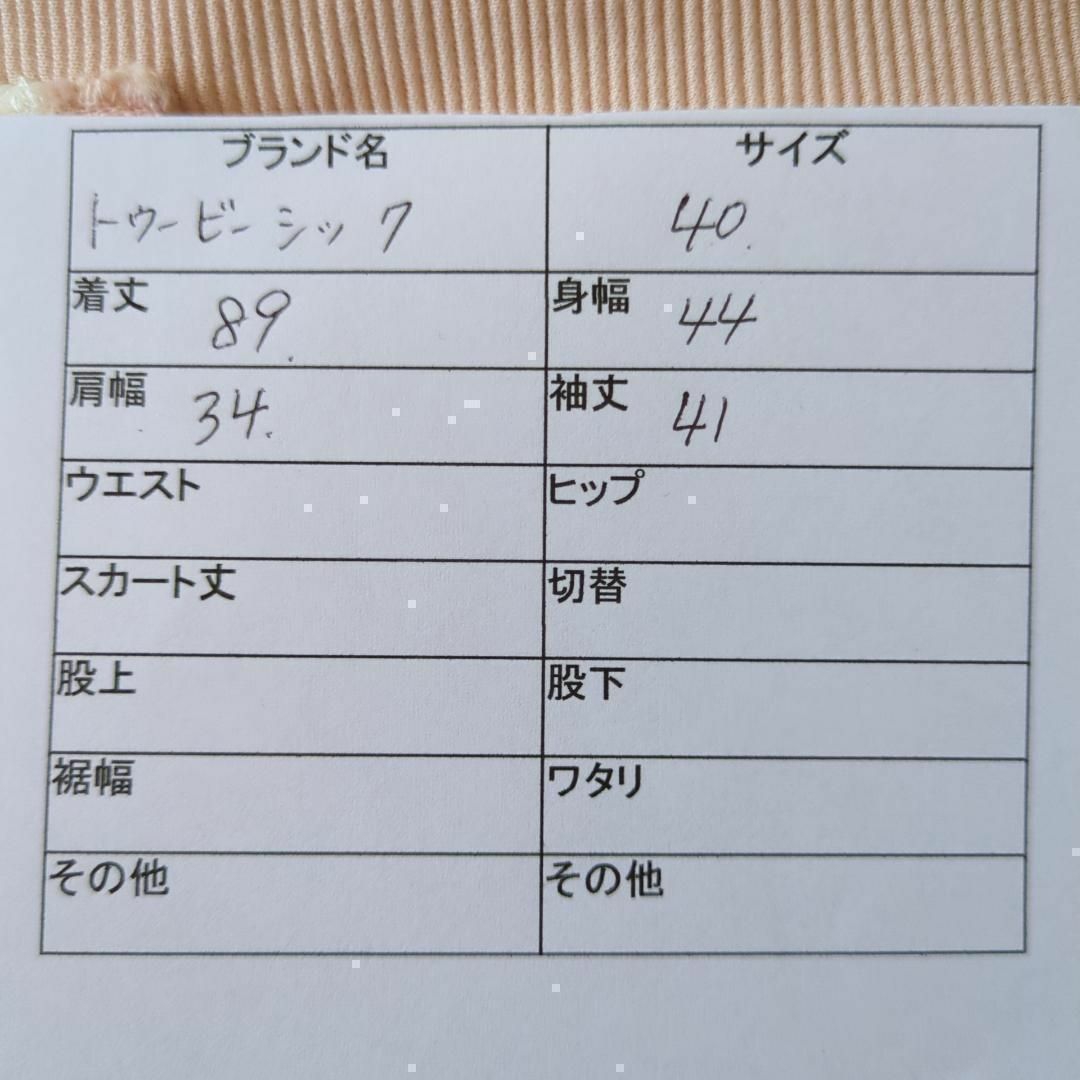 ブランド名 サイズ
トゥービーシック 40.
着丈 89. 身幅 44
肩幅 34. 袖丈 41
ウエスト ヒップ
スカート丈 切替
股上 股下
裾幅 ワタリ
その他 その他